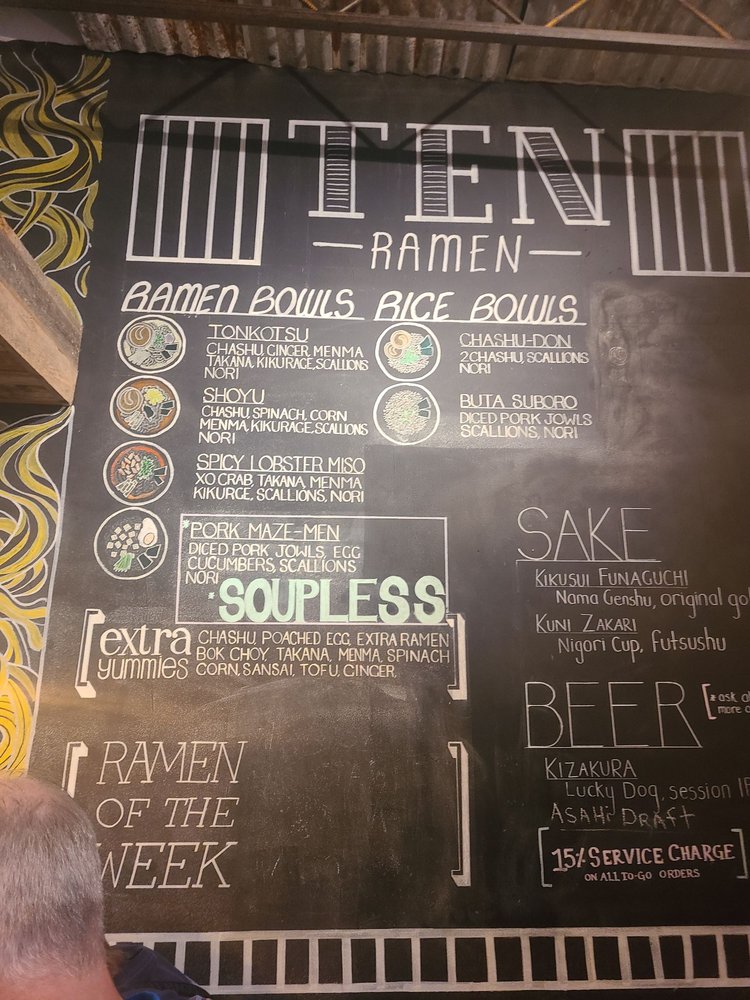 TEN
RAMEN
RAMEN BOWLS
TONKOTSU
CHASHU, GINGER, MENMA
TAKANA, KIKURAGE, SCALLIONS
NORI
SHOYU
CHASHU, SPINACH, CORN
MENMA, KIKURAGE, SCALLIONS
NORI
SPICY LOBSTER MISO
XO CRAB, TAKANA, MENMA
KIKURGE, SCALLIONS, NORI
*PORK MAZE-MEN
DICED PORK JOWLS, EGG
CUCUMBERS, SCALLIONS
NORI
*SOUPLESS
RICE BOWLS
CHASHU-DON
2 CHASHU, SCALLIONS
NORI
BUTA SUBORO
DICED PORK JOWLS
SCALLIONS, NORI
extra
yummies
CHASHU, POACHED EGG, EXTRA RAMEN
BOK CHOY, TAKANA, MENMA, SPINACH
CORN, SANSAI, TOFU, GINGER,
RAMEN
OF THE
WEEK
SAKE
KIKUSUI FUNAGUCHI
Nama Genshu, original
KUNI ZAKARI
Nigori Cup, futsushu
BEER
*ask
more
KIZAKURA
Lucky Dog, session
ASAHI DRAFT
15% SERVICE CHARGE
ON ALL TO-GO ORDERS